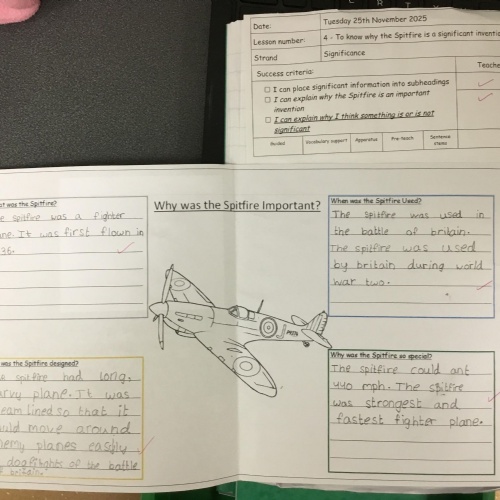 Date: Tuesday 25th November 2025
Lesson number: 4 - To know why the Spitfire is a significant
Strand Significance
Success criteria:
I can place significant information into subheadings
I can explain why the Spitfire is an important
invention
I can explain why I think something is or is not
significant
Guided Vocabulary support Apparatus Pre-teach Sentence
stems
Why was the Spitfire Important?
was the Spitfire?
spitfire was a fighter
It was first flown in
When was the Spitfire Used?
The spitfire was used in
the battle of britain.
The spitfire was used
by britain during world
war two.
was the Spitfire designed?
spitfire had long,
plane. It was
so that it
move around
planes easily
dogfights of the battle
Why was the Spitfire so special?
The spitfire could ant
440 mph. The spitfire
was strongest and
fastest fighter plane.